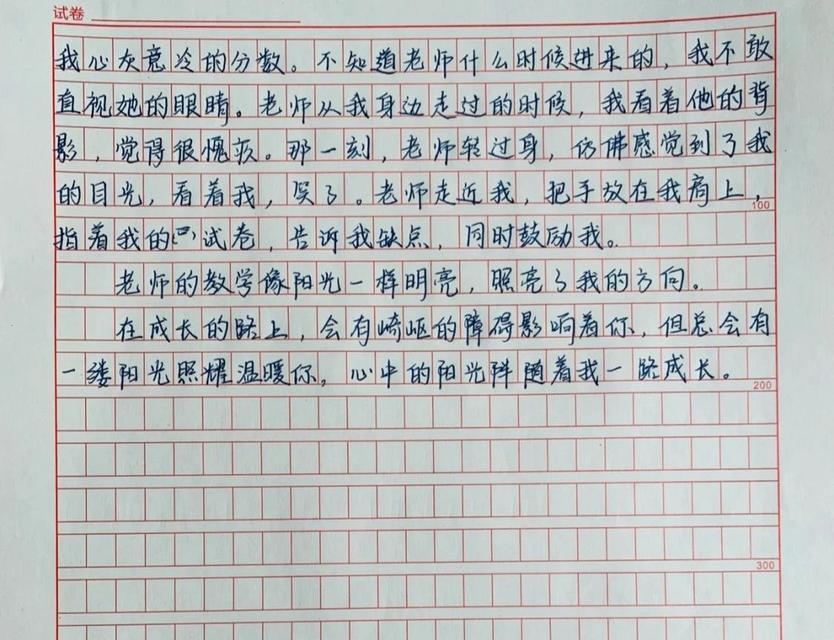 试卷
我心灰意冷的分数。不知道老师什么时候进来的，我不敢
直视她的眼睛。老师从我身边走过的时候，我看着他的背
影，觉得很愧疚。那一刻，老师转过身，仿佛感觉到了我
的目光，看着我，笑了。老师走近我，把手放在我肩上，
100
指着我的试卷，告诉我缺点，同时鼓励我。
老师的教学像阳光一样明亮，照亮了我的方向。
在成长的路上，会有崎岖的障碍影响着你，但总会有
一缕阳光照耀温暖你，心中的阳光陪随着我一路成长。
200
300